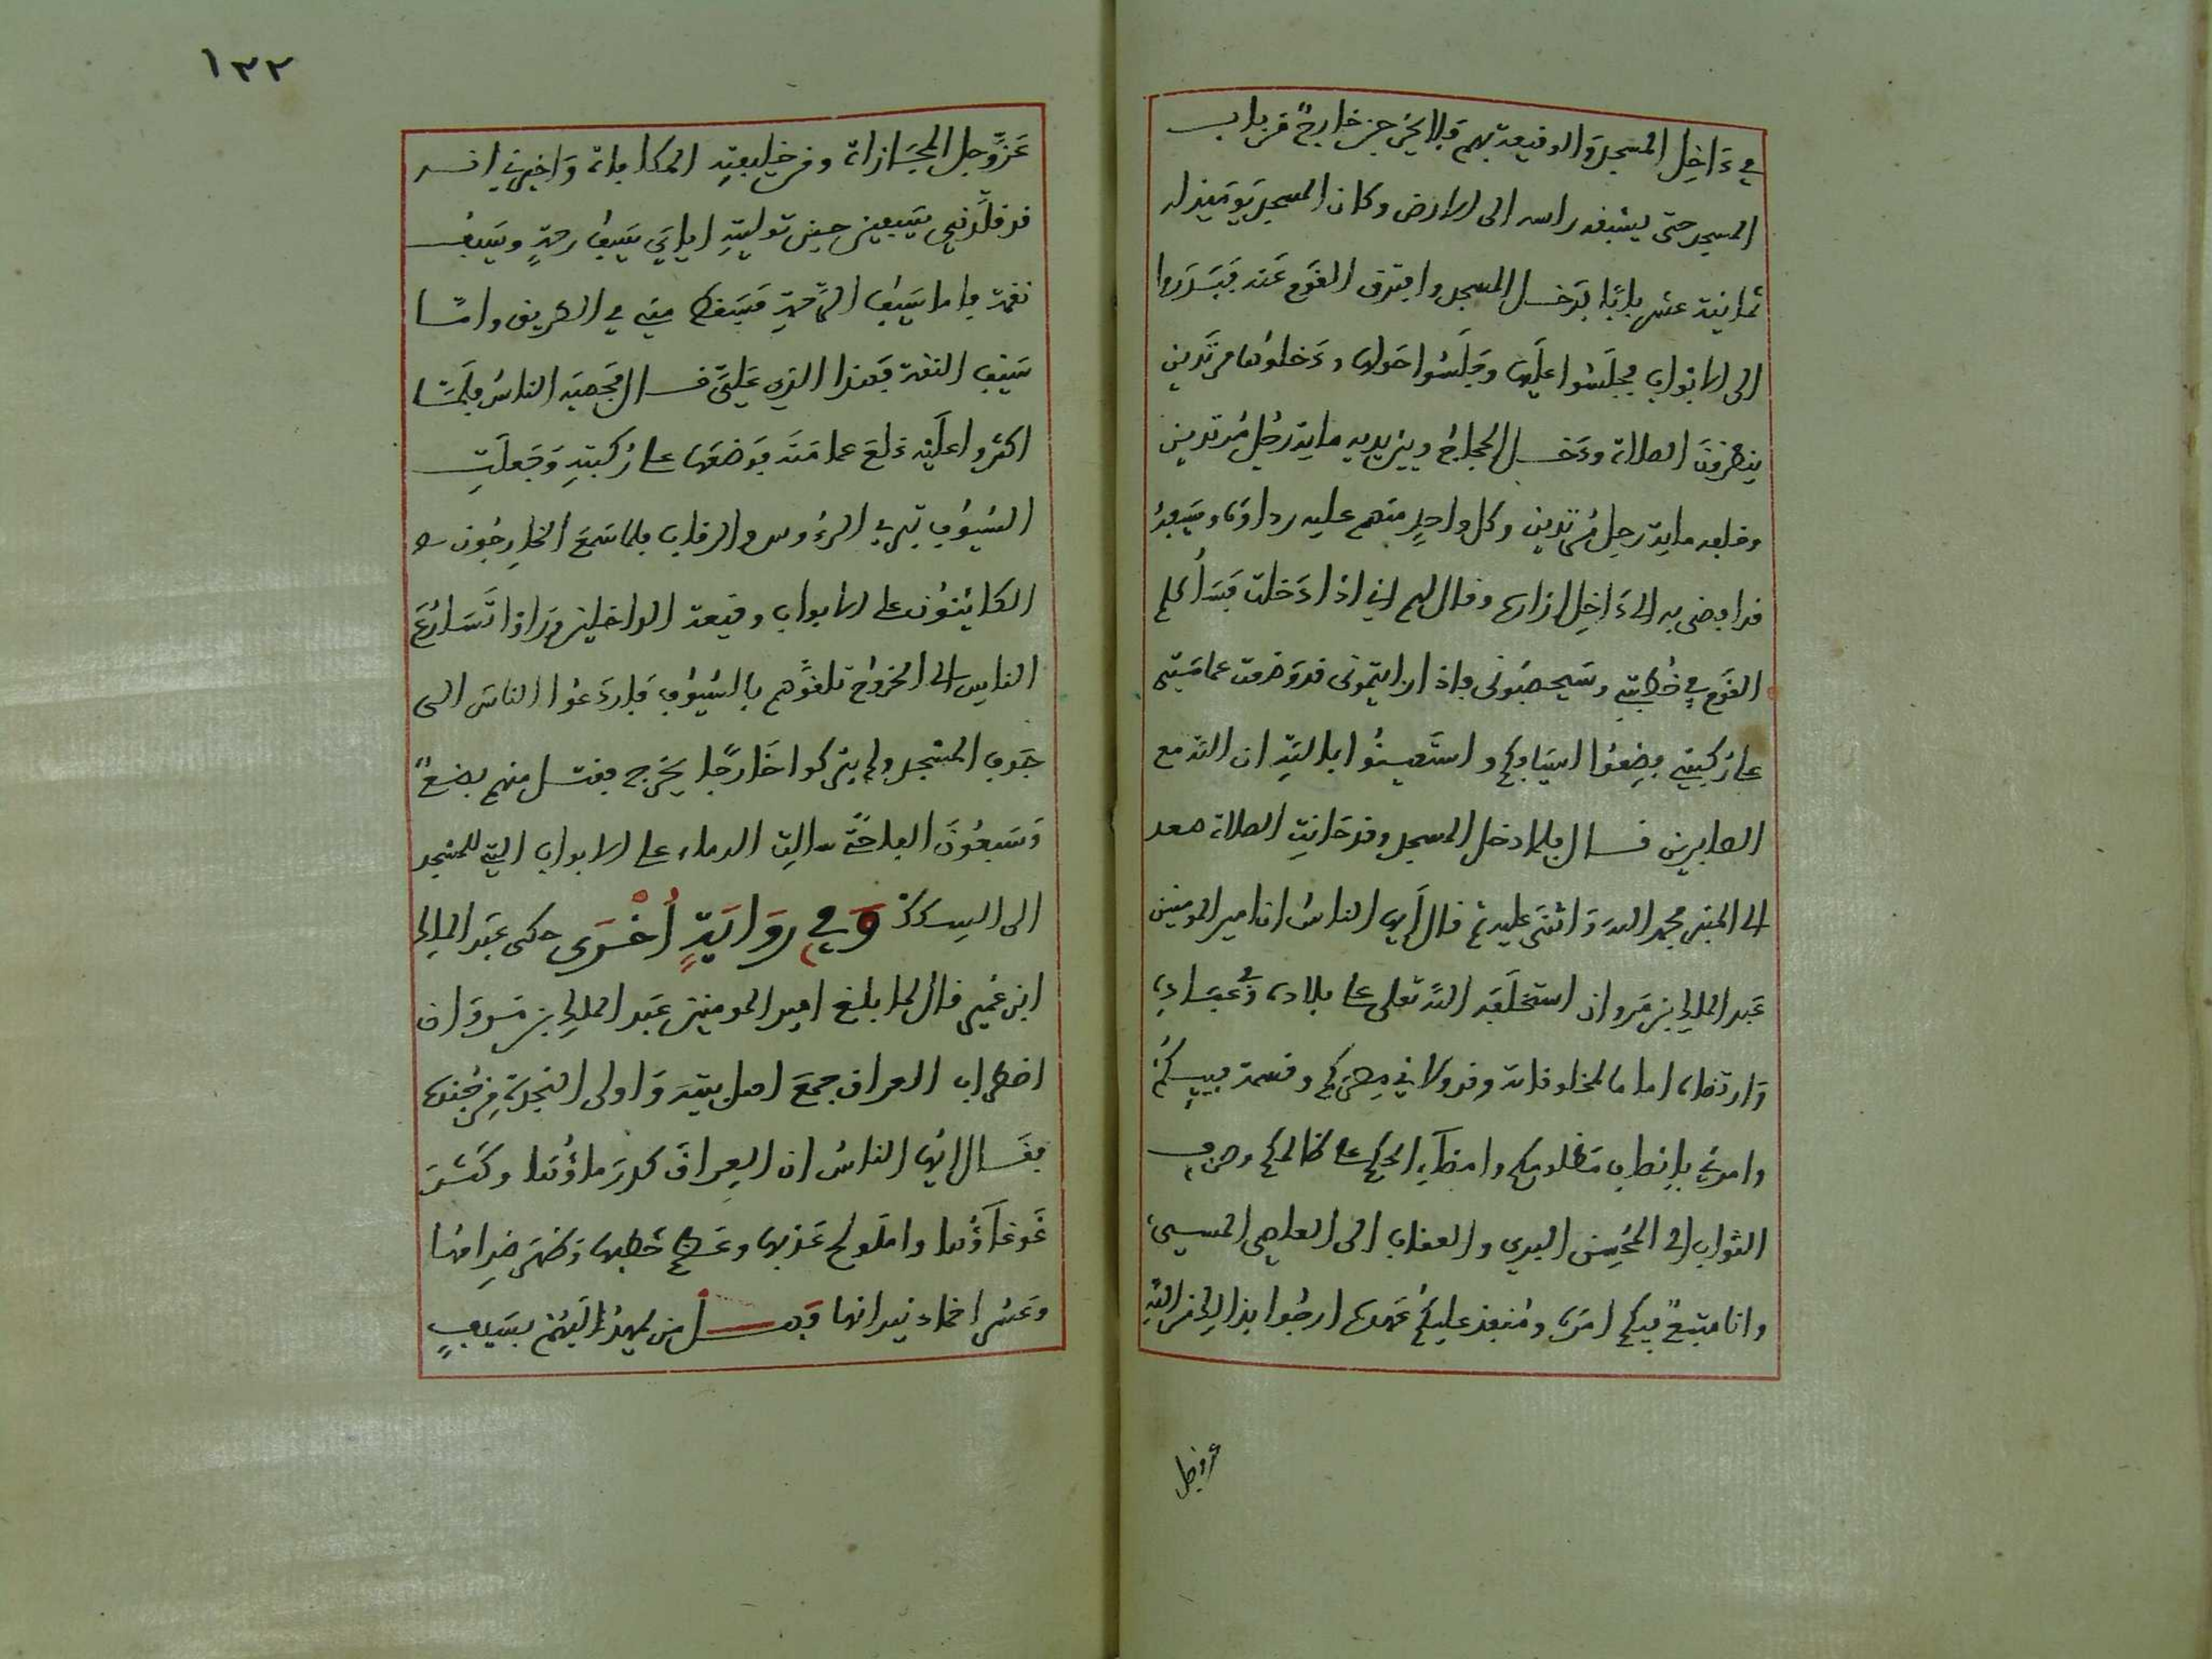 في داخل المسجد والوقيعة بهم فلا يخرجن خارج من باب
المسجد حتى يسبقه راسه الى الارض وكان المسجد يوميذ له
ثمانية عشر بابا فدخل المسجد وافترق القوم عنه فبدروا
الى الابواب فجلسوا عليها وجلسوا حولها ودخلوها مرتدين
ينتظرون الصلاة ودخل الحجاج وبين يديه ماية رجل مرتدين
وخلفه ماية رجل مرتدين وكل واحد منهم عليه رداوه وسيفه
قد افضى به الى داخل ازاره وقال لهم اني اذا دخلت فساكلم
القوم في خطبتي وسيحصبوني فاذا رايتموني قد وضعت عمامتي
على ركبتي فضعوا اسيافكم واستعينوا بالله ان الله مع
الصابرين قال فلما دخل المسجد وقد حانت الصلاة صعد
الى المنبر فحمد الله واثنى عليه ثم قال ايها الناس ان امير المومنين
عبد الملك بن مروان استخلفه الله تعلى على بلاده وفي عباده
وارتضاه اماما لمخلوقاته وقد ولاني مصركم وقسمة فييكم
وامرني بانصاف مظلومكم وامضآء الحكم على ظالمكم وصرف
الثواب الى المحسن البري والعقاب الى العاصي المسيء
وانا متبع فيكم امره ومنفذ عليكم عهده ارجوا بذالك من الله
عز وجل
١٣٢
عز وجل المجازاة ومن خليفته المكافاة واخبرني انه
قد قلدني بسيفين حين توليته اياي سيف رحمة وسيف
نقمة فاما سيف الرحمة فسقط مني في الطريق واما
سيف النقمة فهذا الذي علي قال فحصبه الناس فلما
اكثروا عليه خلع عمامته فوضعها على ركبته فجعلت
السيوف تبري الرءوس والرقاب فلما سمع الخارجون
الكائنون على الابواب وقيعة الداخلين وراوا تسارع
الناس الى الخروج تلقوهم بالسيوف فاردعوا الناس الى
جوف المسجد ولم يتركوا خارجا يخرج فقتل منهم بضع
وسبعون الفا حتى سالت الدماء على الابواب التي للمسجد
الى السكك وفي رواية أخرى حكى عبد الملك
ابن عمير قال لما بلغ امير المومنين عبد الملك بن مروان
اضطراب العراق جمع اهل بيته واولى النجدة من جنده
فقال ايها الناس ان العراق كدر ماؤها وكثر
غوغآؤها واملولح عذبها وعظم خطبها وظهر ضرامها
وعسر اخماد نيرانها فهل من ممهد لهم بسيف